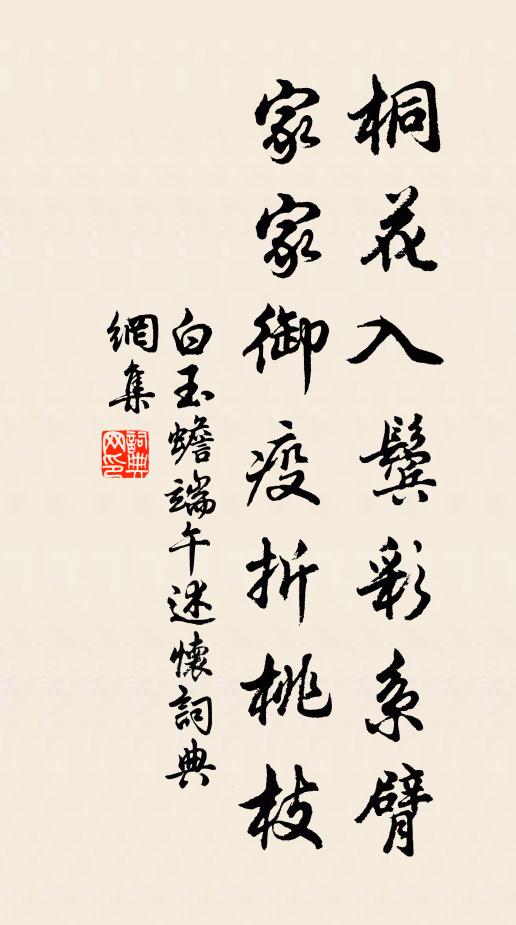 桐花入鬓彩系臂
家家御疫折桃枝
白玉蟾端午述懷詞典
網集
詞典網印